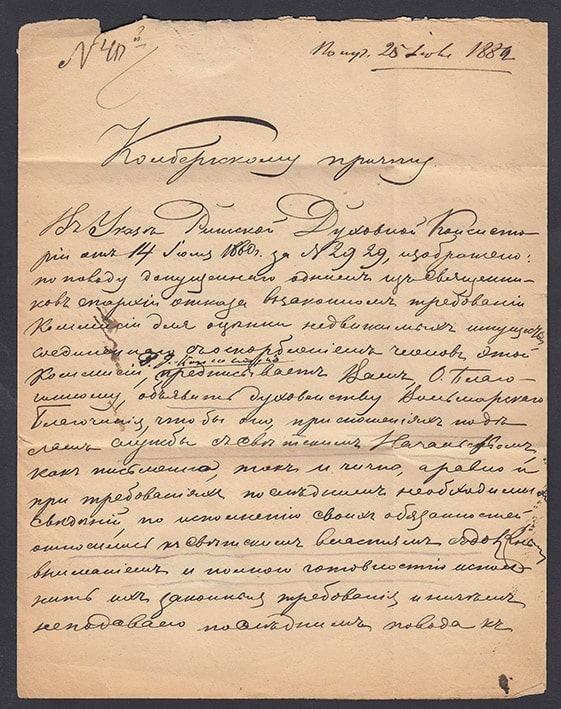 Колбергскому причту.
Въ Указѣ Рижской Духовной Консисто-
ріи отъ 14 Іюля 1880 г. за № 2929, изображено:
по поводу допущеннаго однимъ изъ священни-
ковъ епархіи отказа въ законномъ требованіи
Коммисіи для оцѣнки недвижимыхъ имуществъ
соединеннаго съ оскорбленіемъ членовъ этой
Коммисіи, предписываетъ Вамъ, О. Благо-
чинному, объявить духовенству Вольмарскаго
Благочинія, чтобы оно, при сношеніяхъ по дѣ-
ламъ службы съ свѣтскимъ Начальствомъ
какъ письменно, такъ и лично, а равно и
при требованіяхъ послѣднимъ необходимыхъ
свѣдѣній, по исполненію своихъ обязанностей
относилось къ свѣтскимъ властямъ съ
вниманіемъ и полною готовностію испол-
нить ихъ законныя требованія и ничѣмъ
не подавало послѣднимъ повода къ